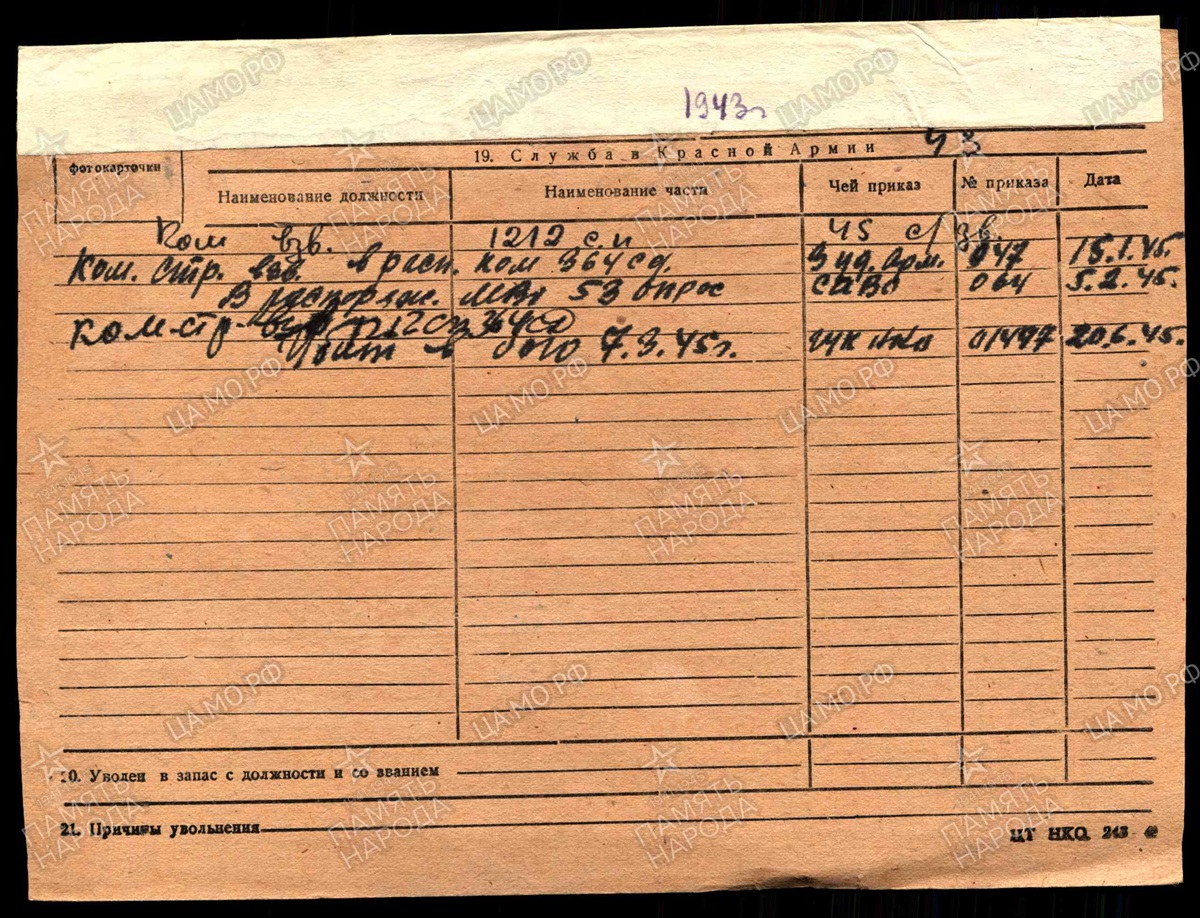 1943г
43
фотокарточки
19. Служба в Красной Армии
Наименование должности Наименование части Чей приказ № приказа Дата
Ком взв. 1212 с.п 45 с/ зв.
Ком. стр. взв. в расп. ком 364 сд. 3 уд. арм. 047 15.1.45.
В распоряж. 53 064 5.2.45.
Ком. стр. взв 1212 сп 364 сд
Убит в бою 7.3.45г. ГУК НКО 01497 20.6.45.
20. Уволен в запас с должности и со званием
21. Причины увольнения
ЦТ НКО 243
ЦАМО.РФ
ПАМЯТЬ НАРОДА